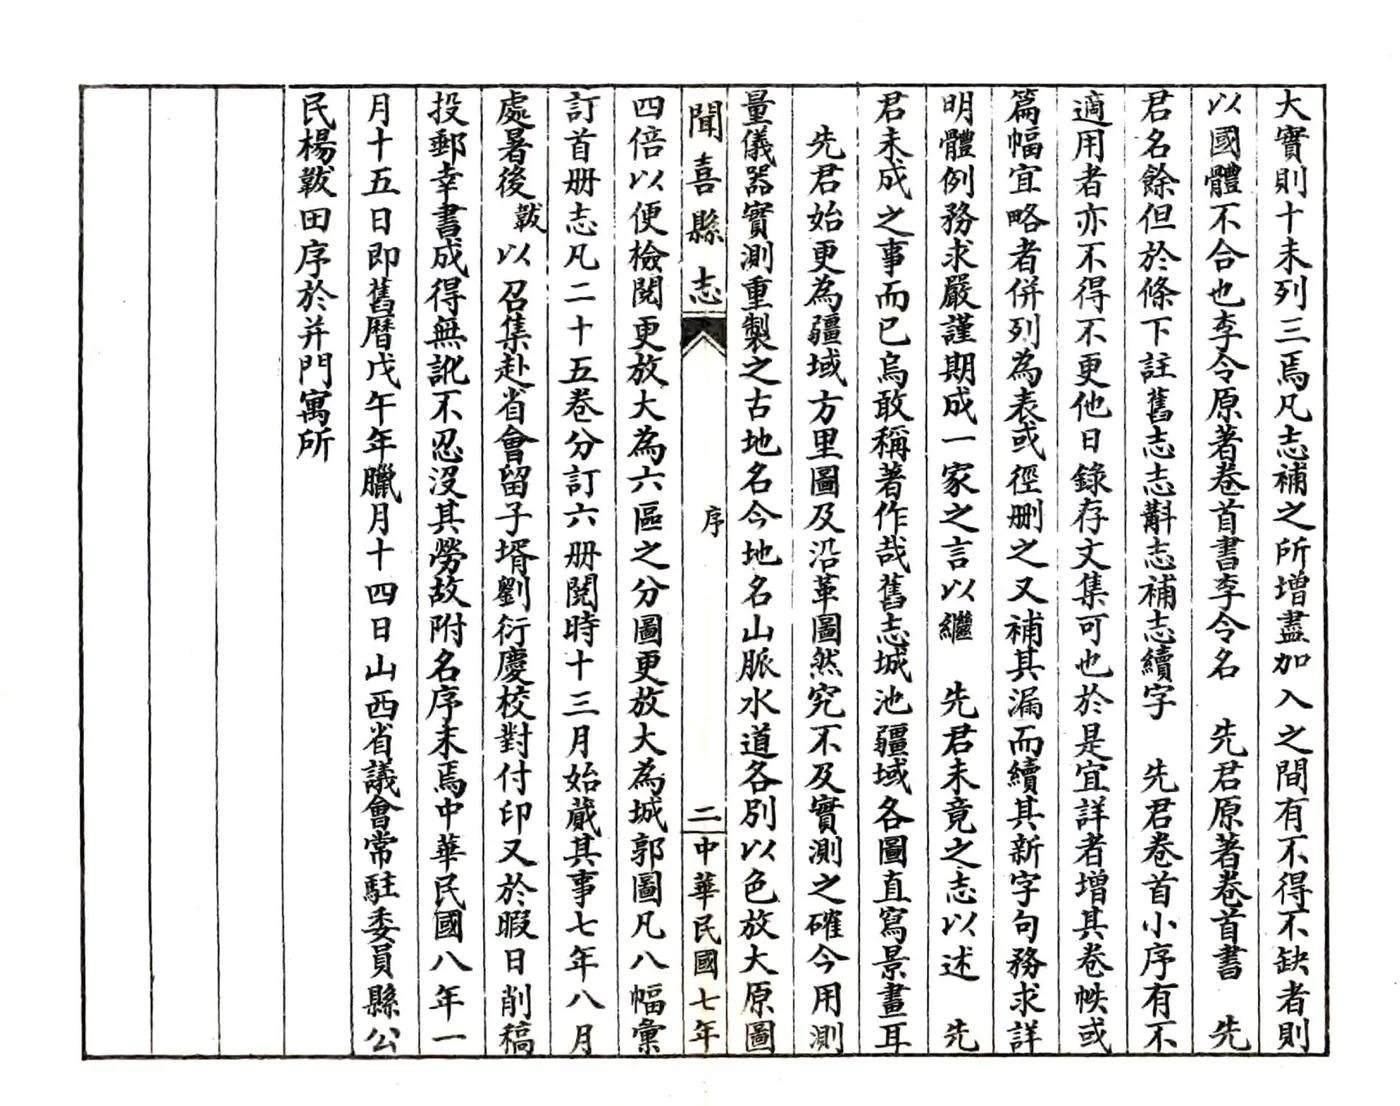 大實則十未列三焉凡志補之所增盡加入之間有不得不缺者則
以國體不合也李令原著卷首書李令名　先君原著卷首書　先
君名餘但於條下註舊志志斠志補志續字　先君卷首小序有不
適用者亦不得不更他日錄存文集可也於是宜詳者增其卷帙或
篇幅宜略者併列為表或徑删之又補其漏而續其新字句務求詳
明體例務求嚴謹期成一家之言以繼　先君未竟之志以述　先
君未成之事而已烏敢稱著作哉舊志城池疆域各圖直寫景畫耳
先君始更為疆域方里圖及沿革圖然究不及實測之確今用測
量儀器實測重製之古地名今地名山脈水道各別以色放大原圖
聞喜縣志　序　二　中華民國七年
四倍以便檢閱更放大為六區之分圖更放大為城郭圖凡八幅彙
訂首册志凡二十五卷分訂六册閱時十三月始蕆其事七年八月
處暑後韍以召集赴省會留子壻劉衍慶校對付印又於暇日削稿
投郵幸書成得無訛不忍沒其勞故附名序末焉中華民國八年一
月十五日即舊曆戊午年臘月十四日山西省議會常駐委員縣公
民楊韍田序於并門寓所